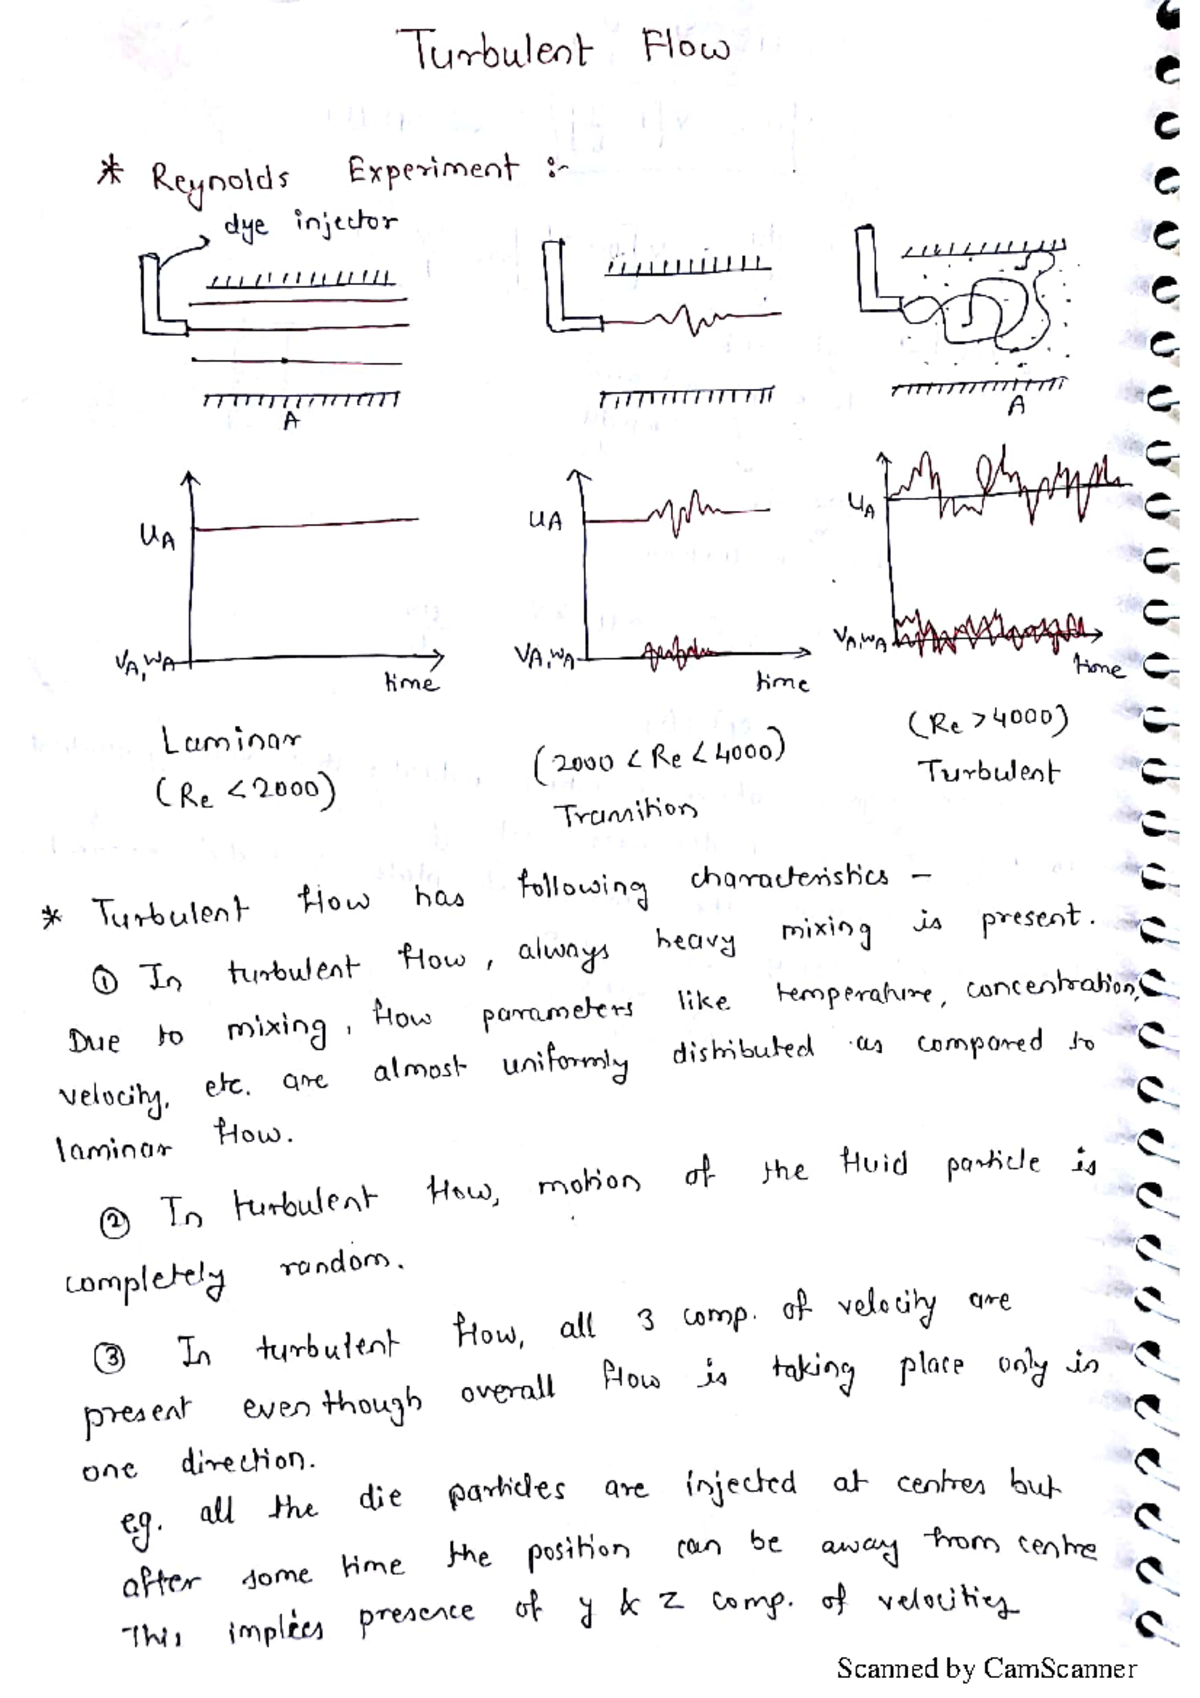 Turbulent Flow
* Reynolds Experiment :-
dye injector
A
A
UA
VA, WA
time
UA
VA, WA
time
UA
VA, WA
time
Laminar
(Re < 2000)
(2000 < Re < 4000)
Transition
(Re > 4000)
Turbulent
* Turbulent flow has following characteristics -
① In turbulent flow, always heavy mixing is present.
Due to mixing, flow parameters like temperature, concentration,
velocity, etc. are almost uniformly distributed as compared to
laminar flow.
② In turbulent flow, motion of the fluid particle is
completely random.
③ In turbulent flow, all 3 comp. of velocity are
present even though overall flow is taking place only in
one direction.
e.g. all the die particles are injected at centres but
after some time the position can be away from centre
This implies presence of y & z comp. of velocities
Scanned by CamScanner